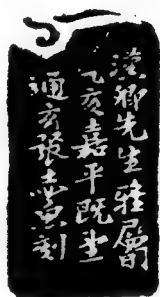 漢卿先生雅屬
乙亥嘉平既望
通玄張志魚刻